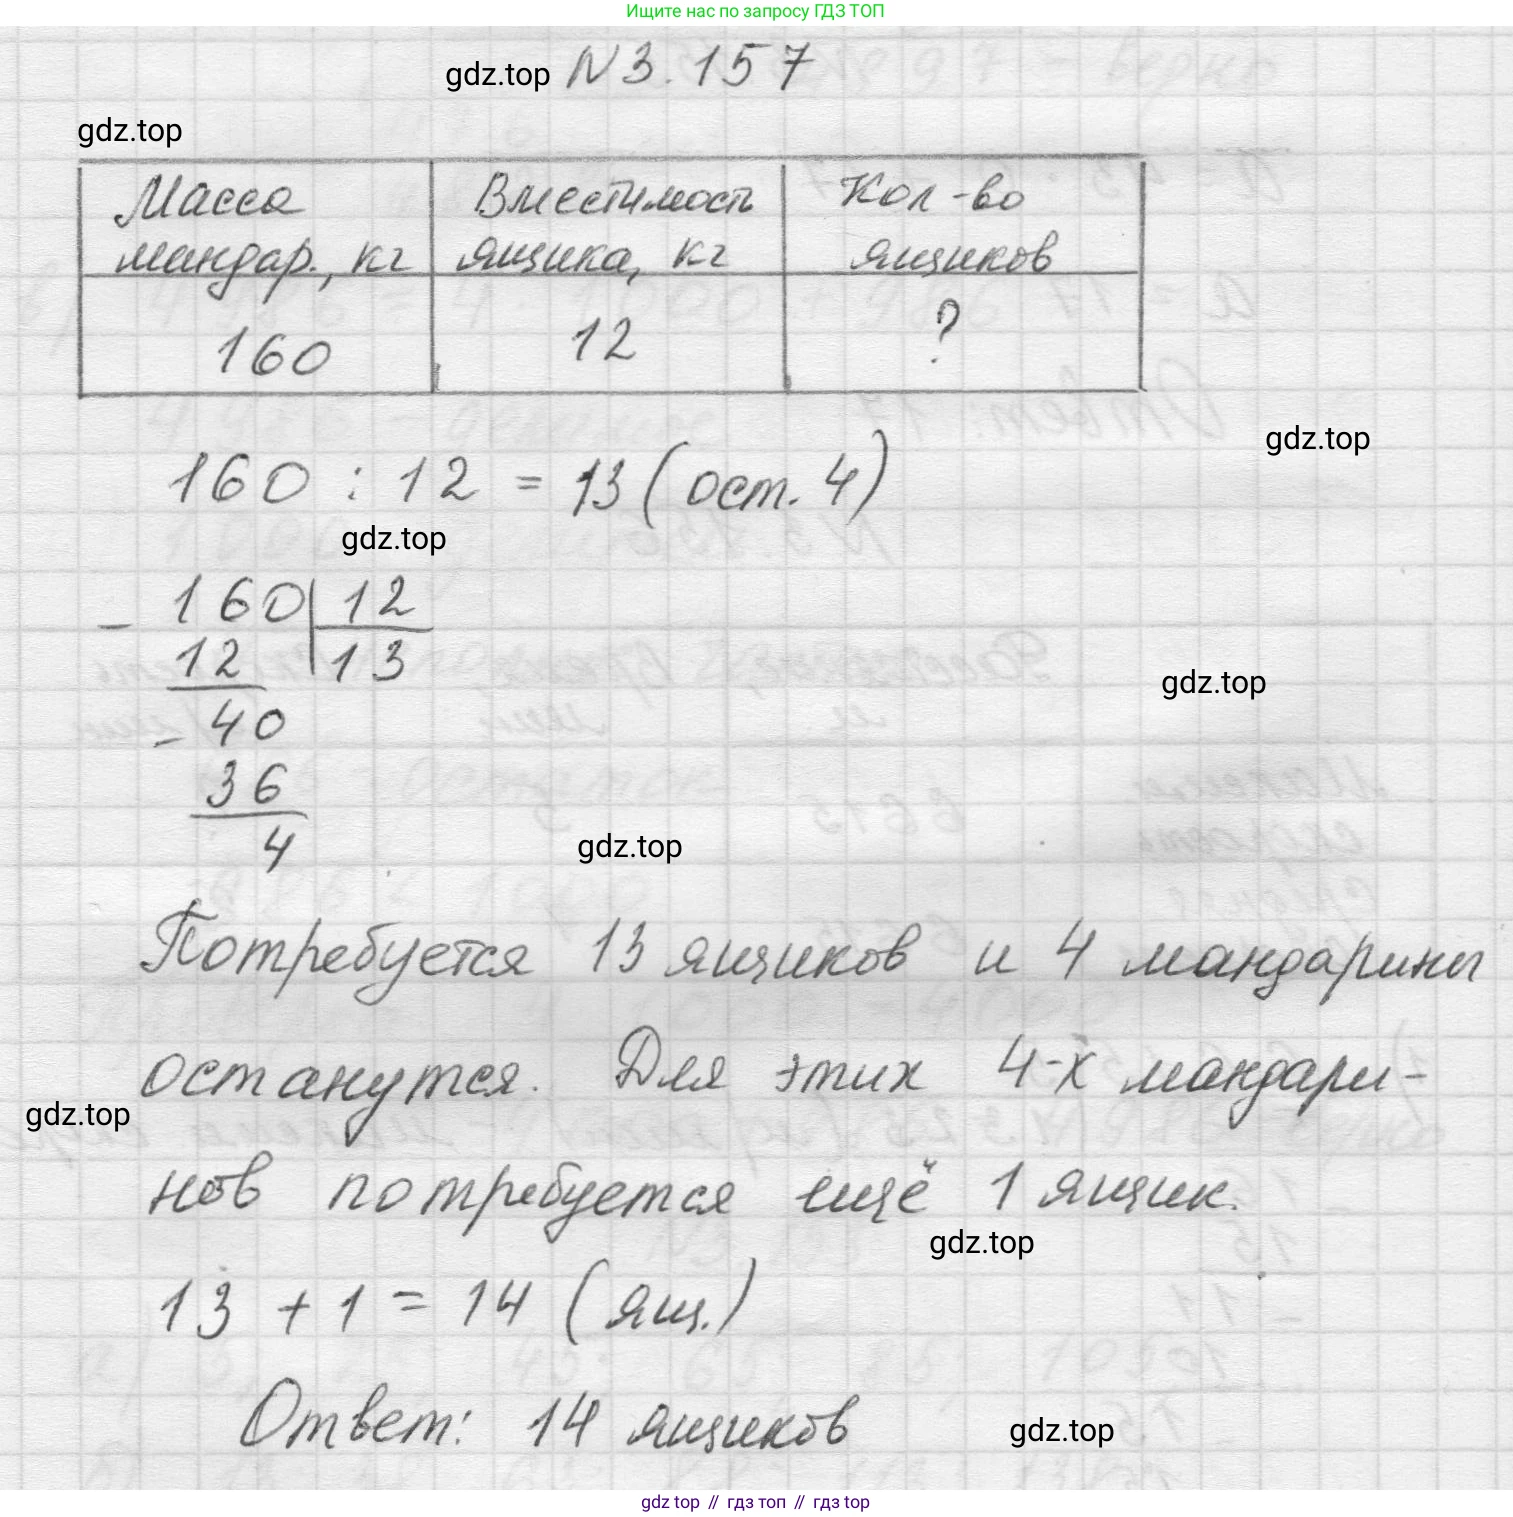 Ищите нас по запросу ГДЗ ТОП
gdz.top №3.157
gdz.top
Масса Вместимость Кол-во
мандар., кг ящика, кг ящиков
160 12 ?
gdz.top
160 : 12 = 13 (ост. 4)
gdz.top
- 160 12
12 13
gdz.top
- 40
36
4
gdz.top
Потребуется 13 ящиков и 4 мандарины
останутся. Для этих 4-х мандари-
gdz.top
нов потребуется ещё 1 ящик.
gdz.top
13 + 1 = 14 (ящ.)
Ответ: 14 ящиков
gdz.top
gdz top // гдз топ // гдз top